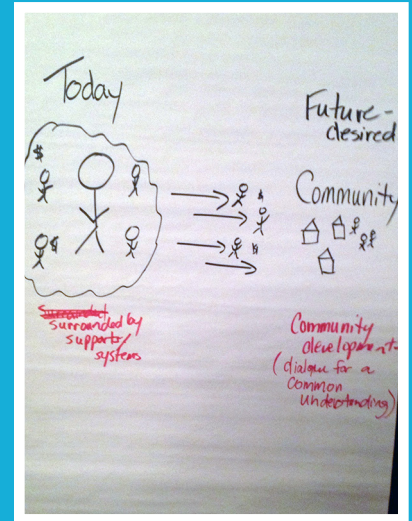 Today
Future-
desired
$
$
$
$
Community
surrounded by
supports/
systems
Community
development
(dialogue for a
common
understanding)